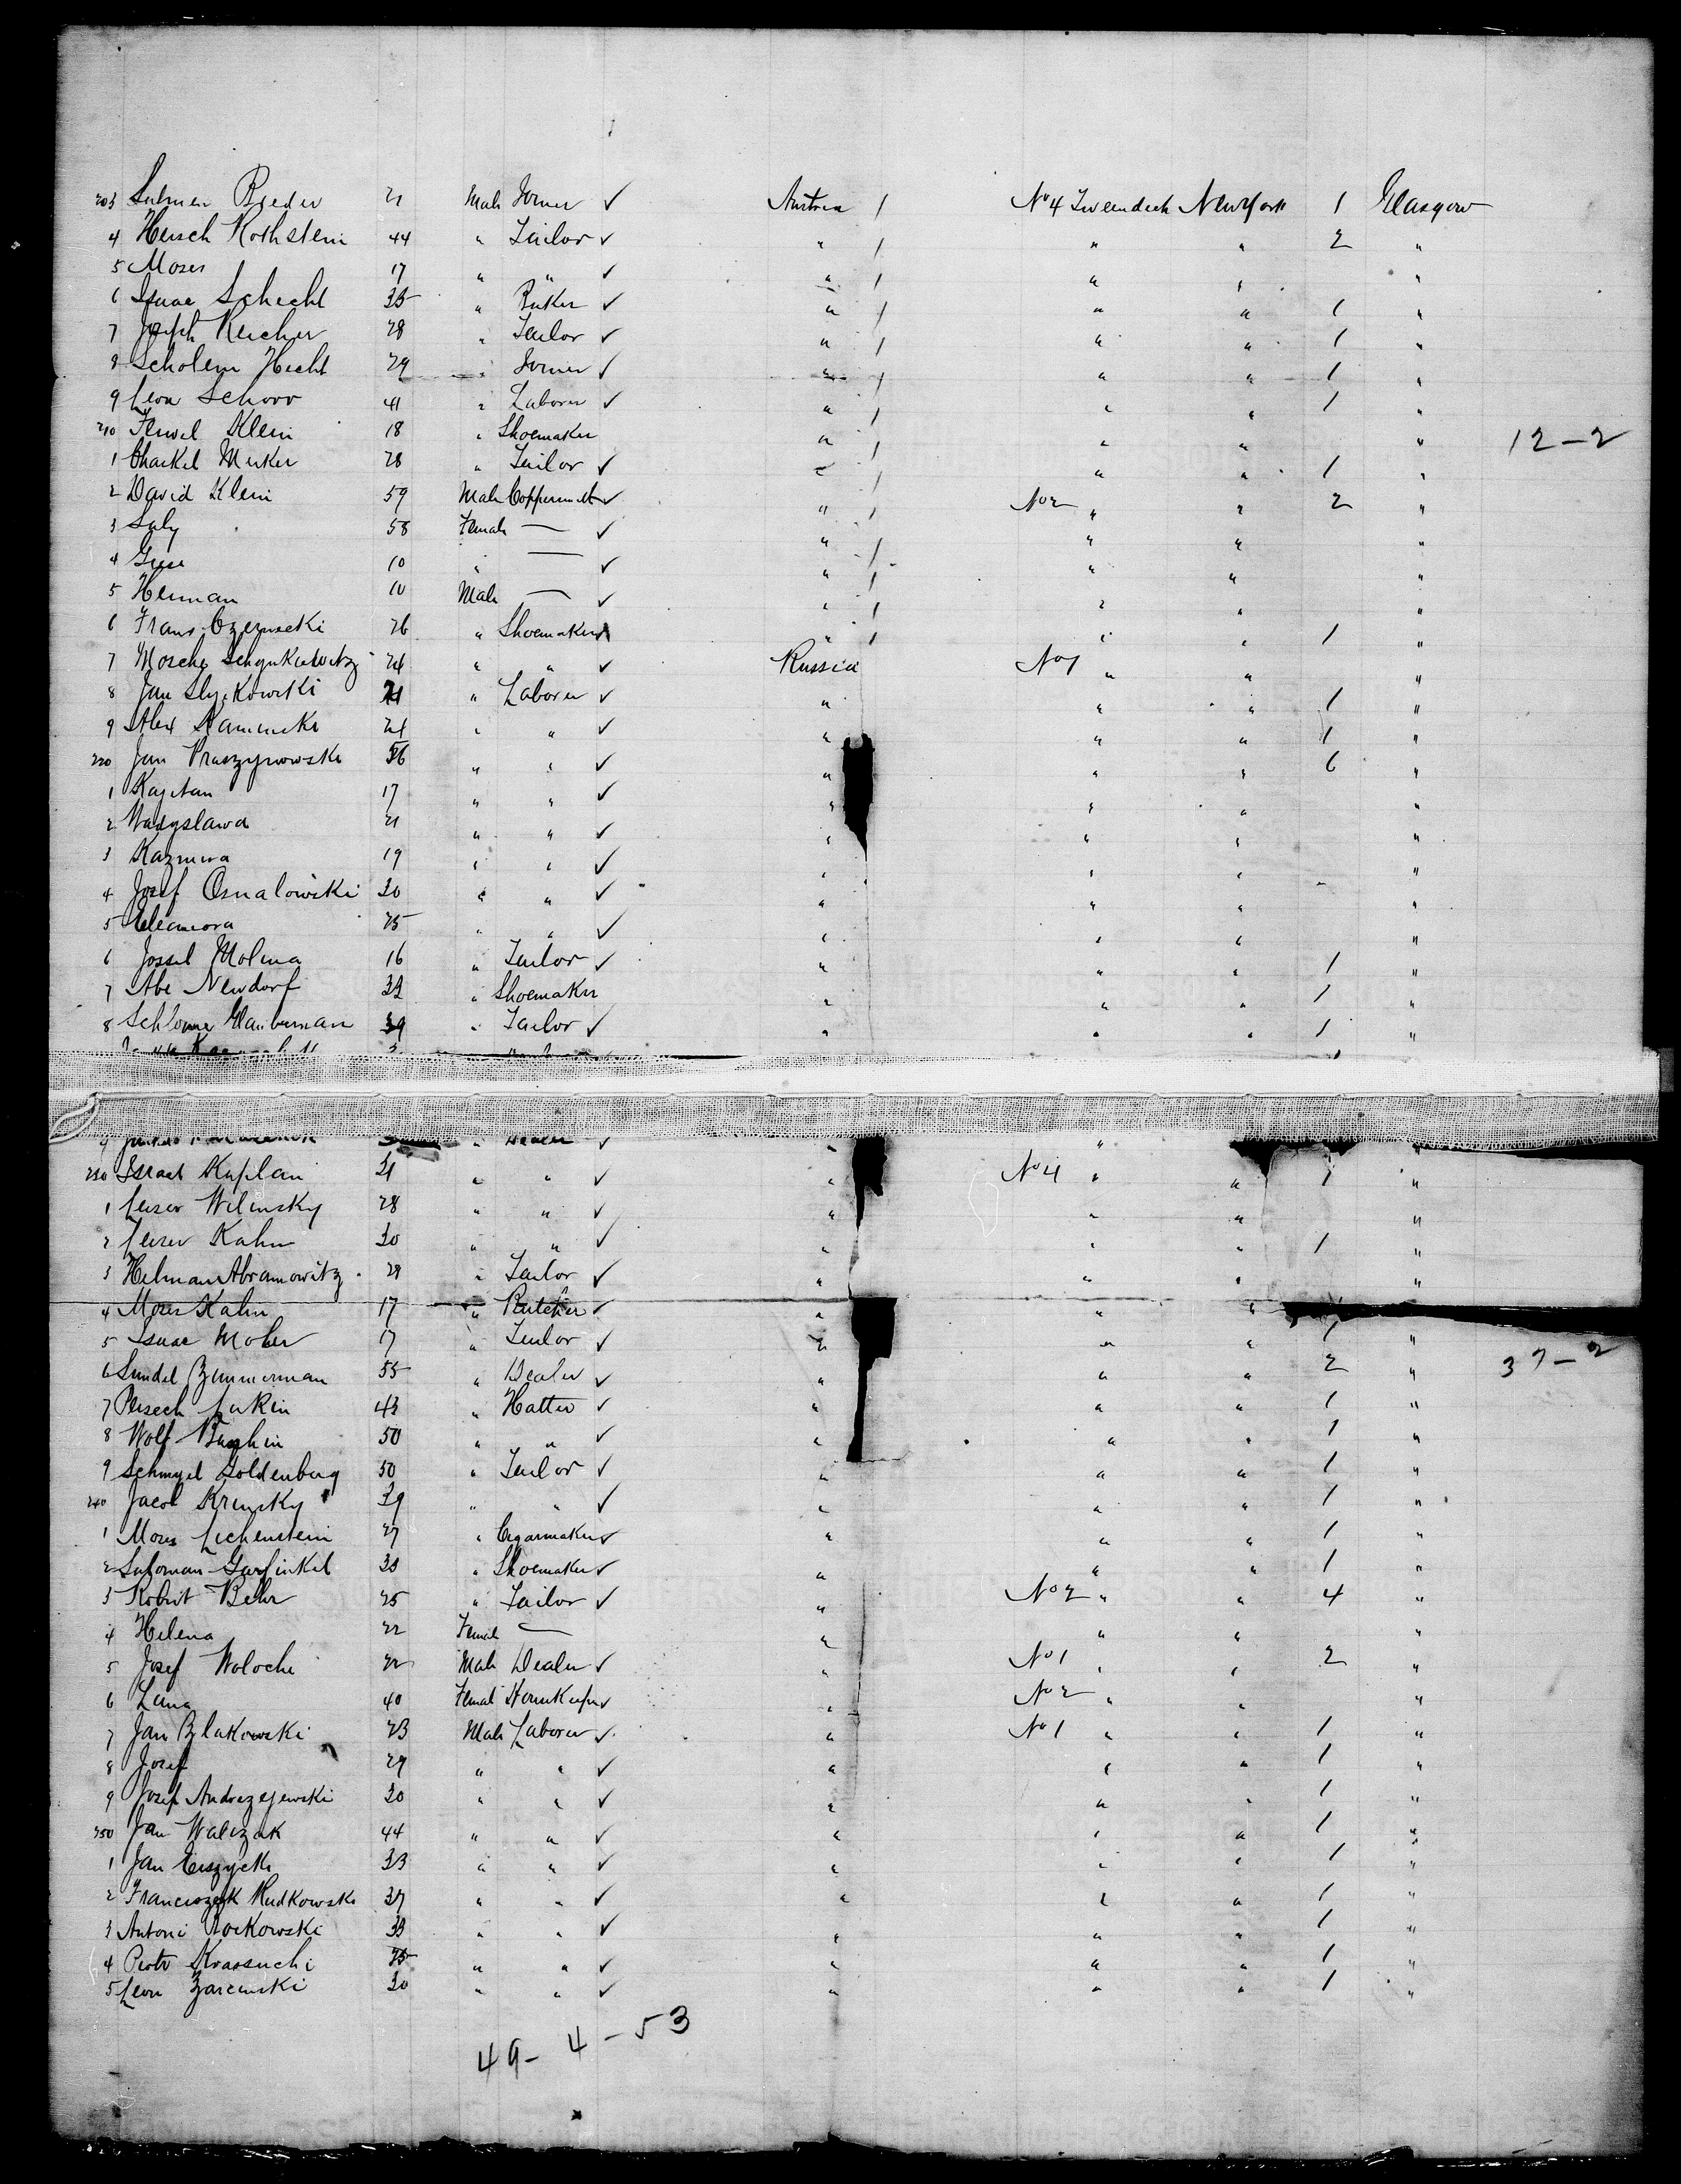 203 Salmen Breder 21 Male Joiner ✓ Austria / No 4 Tweendeck New York 1 Glasgow
4 Hersch Rothstein 44 " Tailor ✓ " / " " 2 "
5 Moses 17 " " ✓ " / " " "
6 Isaac Schecht 35 " Baker ✓ " / " " 1 "
7 Joseph Reicher 28 " Tailor ✓ " / " " 1 "
8 Scholem Hecht 29 " Joiner ✓ " / " " 1 "
9 Leon Schorr 41 " Laborer ✓ " / " " 1 "
210 Feiwel Klein 18 " Shoemaker " / " " " 12-2
1 Chaskel Merker 28 " Tailor ✓ " / " " 1 "
2 David Klein 59 Male Coppersmith ✓ " / No 2 " " 2 "
3 Saly 58 Female — ✓ " / " " "
4 10 " — ✓ " / " " "
5 Herman 10 Male — ✓ " / " " "
6 Franz 26 " Shoemaker ✓ " / " " 1 "
7 Mosche 24 " " ✓ Russia No 1 " " "
8 Jan 21 " Laborer ✓ " " " 1 "
9 Alex Kaminski 24 " " ✓ " " " 1 "
220 Jan Praszynowski 56 " " ✓ " " " 6 "
1 Kajetan 17 " " ✓ " " " "
2 Wadyslawa 21 " " ✓ " " " "
3 Kazmira 19 " " ✓ " " " "
4 Josef Osnalowski 30 " " ✓ " " " "
5 Eleanora 25 " " ✓ " " " "
6 Jossel Molina 16 " Tailor ✓ " " " 1 "
7 Abe Neudorf 32 " Shoemaker " " " 1 "
8 Schlome Glauberman 39 " Tailor ✓ " " " 1 "
9 " Dealer ✓ " " "
230 Israel Kaplan 21 " " ✓ " No 4 " " 1 "
1 Leiser Wilinsky 28 " " ✓ " " " "
2 Leiser Kahn 30 " " ✓ " " " 1 "
3 Helman Abramowitz 29 " Tailor ✓ " " " "
4 Moses Kahn 17 " Butcher ✓ " " "
5 Isaac Moler 17 " Tailor ✓ " " " 1 "
6 Sundel Zimmerman 55 " Dealer ✓ " " " 2 " 37-2
7 Pesech Lurkin 43 " Hatter ✓ " " " 1 "
8 Wolf 50 " " ✓ " " " 1 "
9 Schmyel Goldenberg 50 " Tailor ✓ " " " 1 "
240 Jacob Krinsky 39 " " ✓ " " " 1 "
1 Moses Lichenstein 27 " Cigarmaker ✓ " " " 1 "
2 Saloman Garfinkel 30 " Shoemaker ✓ " " " 1 "
3 Robert Behr 25 " Tailor ✓ " No 2 " " 4 "
4 Helena 22 Female — " " " "
5 Josef Woloche 22 Male Dealer ✓ " No 1 " " 2 "
6 Lena 40 Female Housekeeper ✓ " No 2 " " "
7 Jan Bzlakowski 23 Male Laborer ✓ " No 1 " " 1 "
8 Josef 29 " " ✓ " " " 1 "
9 Josef Andrzejewski 30 " " ✓ " " " 1 "
250 Jan Walczak 44 " " ✓ " " " 1 "
1 Jan 33 " " ✓ " " " 1 "
2 Franciszek Rudkowski 37 " " ✓ " " " 1 "
3 Antoni Rockowski 33 " " ✓ " " " 1 "
4 Piotr Krassuchi 25 " " ✓ " " " 1 "
5 Leon Zaremski 30 " " ✓ " " " 1 "
49-4-53